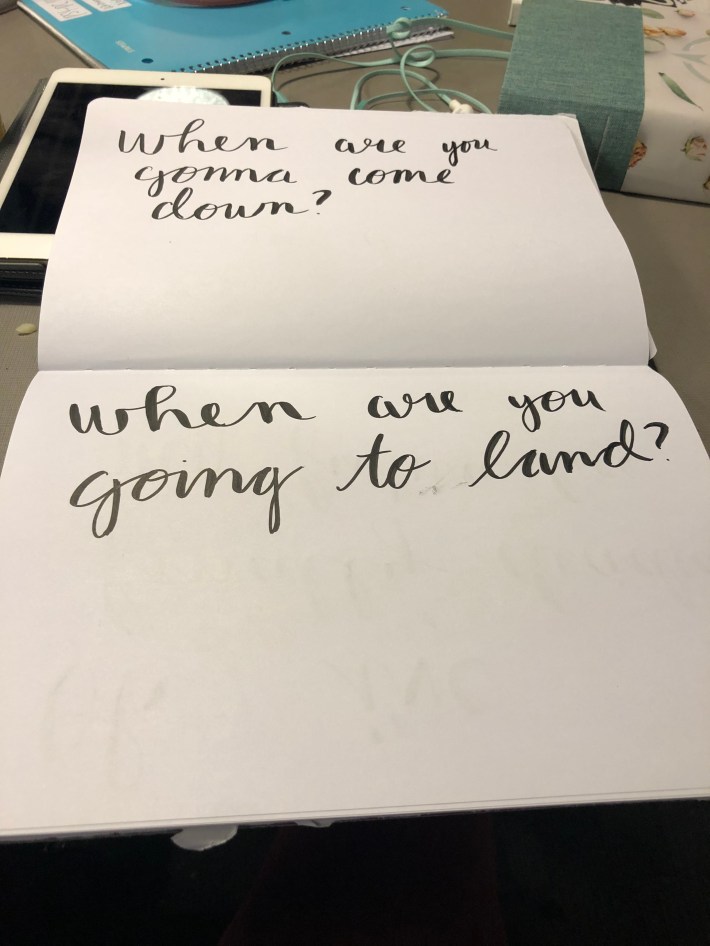 When are you
gonna come
down?
when are you
going to land?